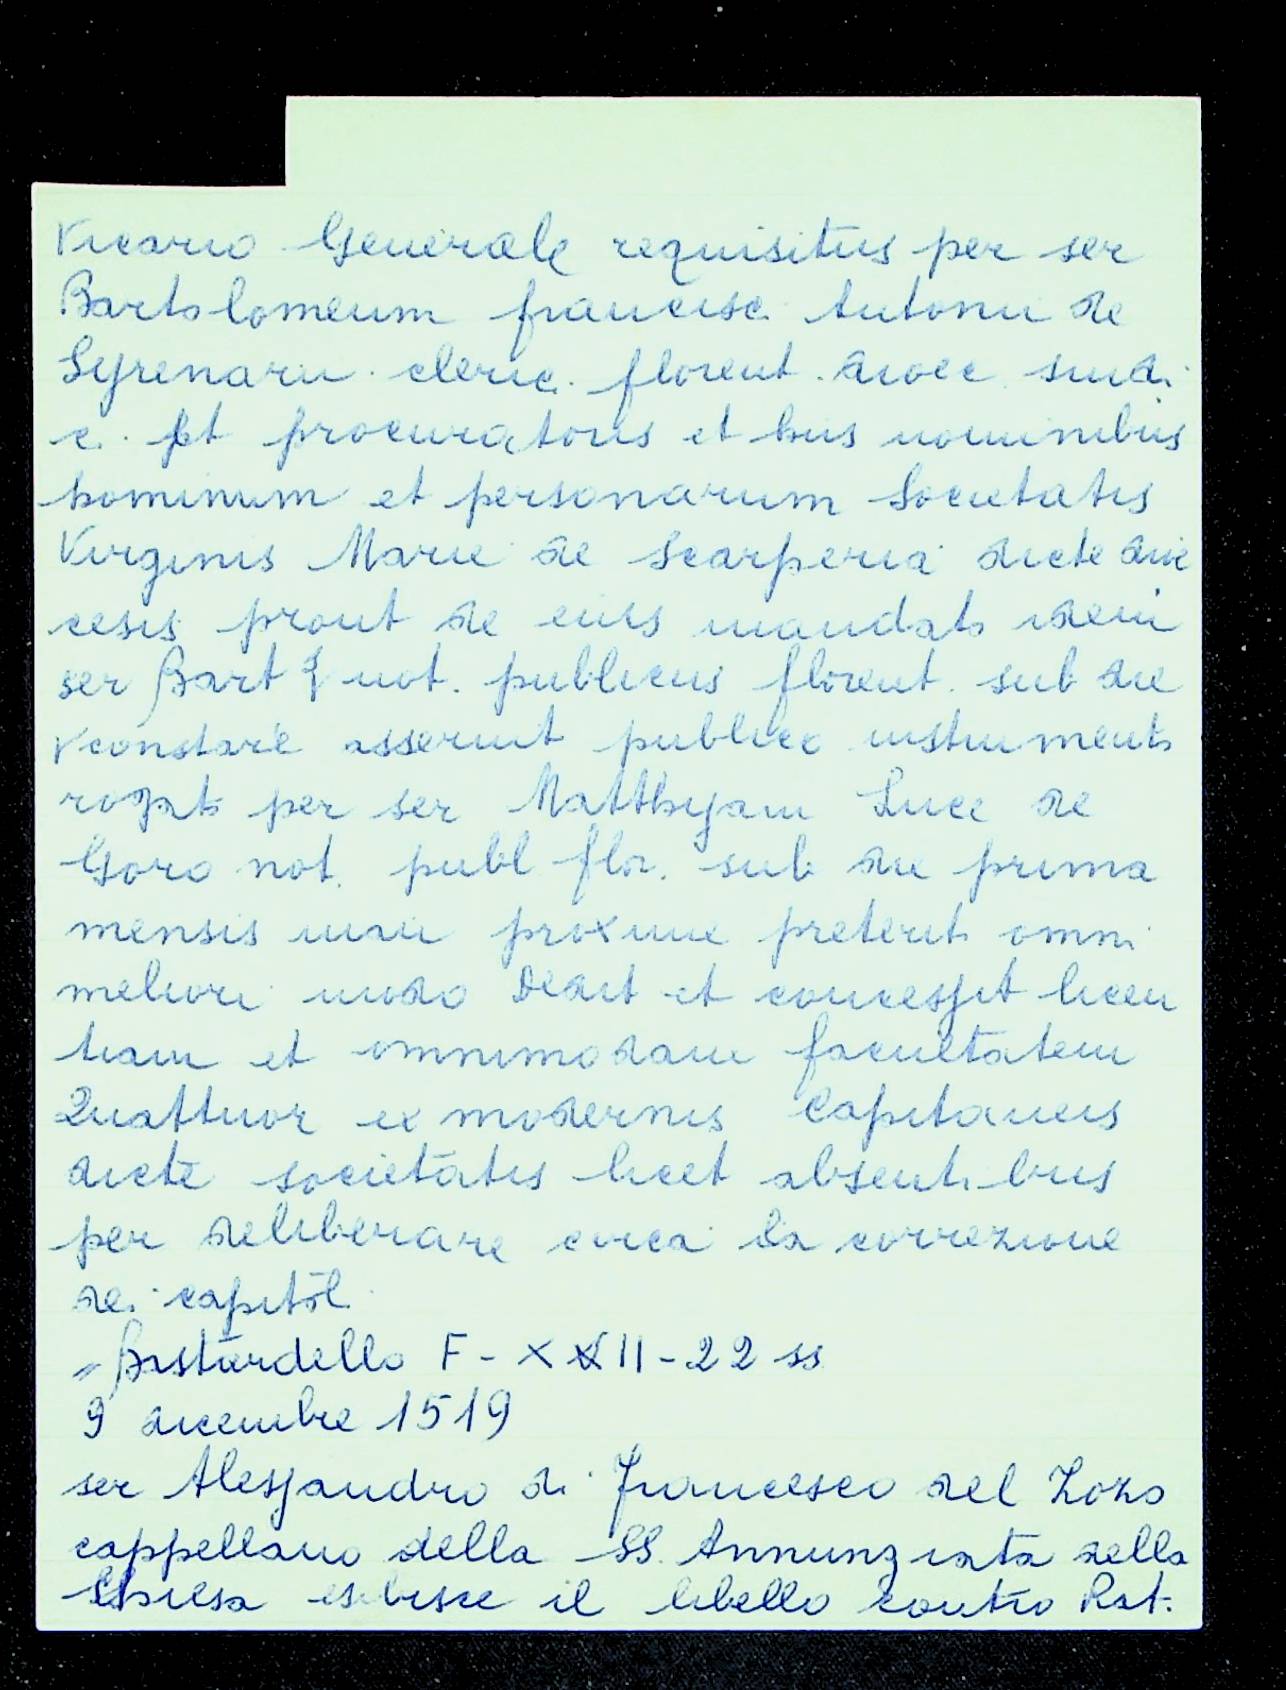 Vicario Generale requisitus per ser
Bartolomeum francisc. Antonii de
Syrenarii. cleric. florent. dioec. sindi
c. et procuratoris et his nominibus
hominum et personarum Societatis
Virginis Marie de Scarperia dicte dio
cesis prout de eius mandato idem
ser Bart not. publicus florent. sub die
constare asseruit publico instrumento
rogato per ser Matthyam Luce de
Goro not. publ flor. sub die prima
mensis maii proxime preteriti omni
meliori modo Dedit et concessit licen
tiam et omnimodam facultatem
Quattuor ex modernis Capitaneis
dicte societatis licet absentibus
per deliberare circa la correzione
dei capitol.
" Bastardello F - XXII - 22 ss
9 dicembre 1519
ser Alessandro di Francesco del Zozo
cappellano della SS. Annunziata nella
Chiesa esibisce il libello contro Rat.